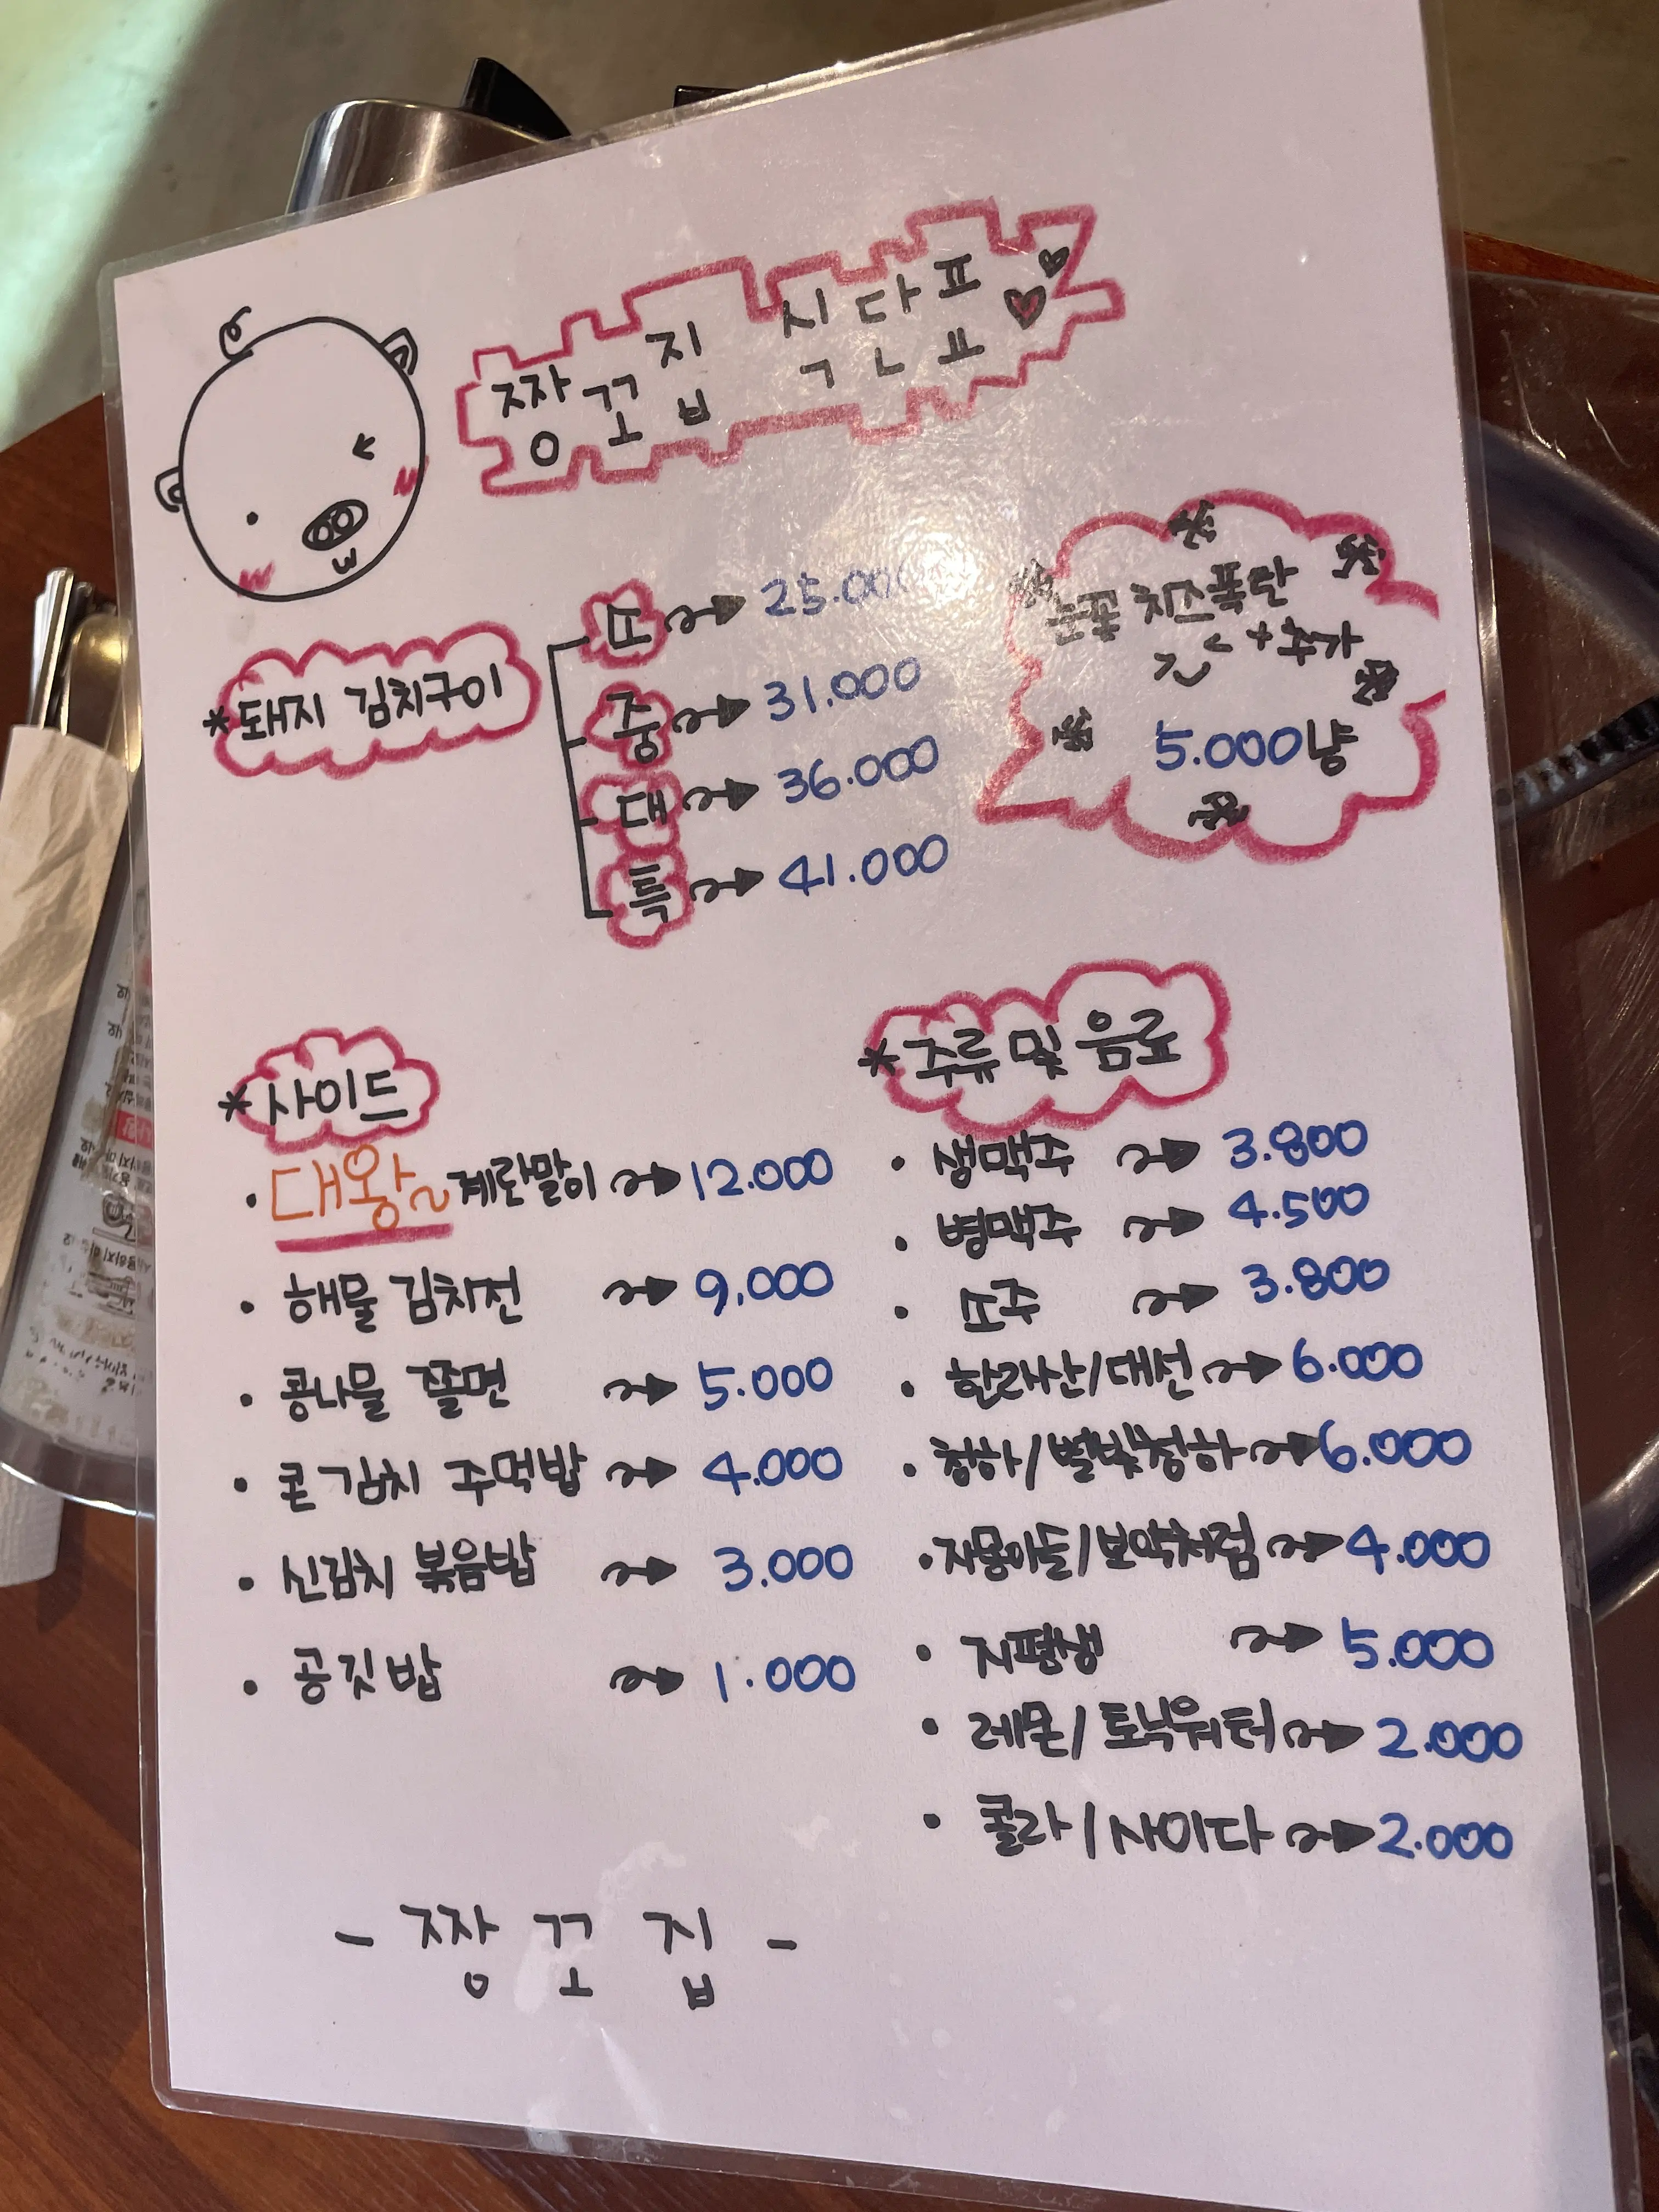 짱꼬집 식단표
* 돼지 김치구이
소 → 25.000
중 → 31.000
대 → 36.000
특 → 41.000
눈꽃 치즈폭탄
추가
5.000냥
* 사이드
· 대왕~계란말이 → 12.000
· 해물 김치전 → 9.000
· 콩나물 쫄면 → 5.000
· 콘김치 주먹밥 → 4.000
· 신김치 볶음밥 → 3.000
· 공깃밥 → 1.000
* 주류 및 음료
· 생맥주 → 3.800
· 병맥주 → 4.500
· 소주 → 3.800
· 한라산/대선 → 6.000
· 청하/별빛청하 → 6.000
· 자몽이슬/보약처럼 → 4.000
· 지평생 → 5.000
· 레몬/토닉워터 → 2.000
· 콜라/사이다 → 2.000
- 짱꼬집 -